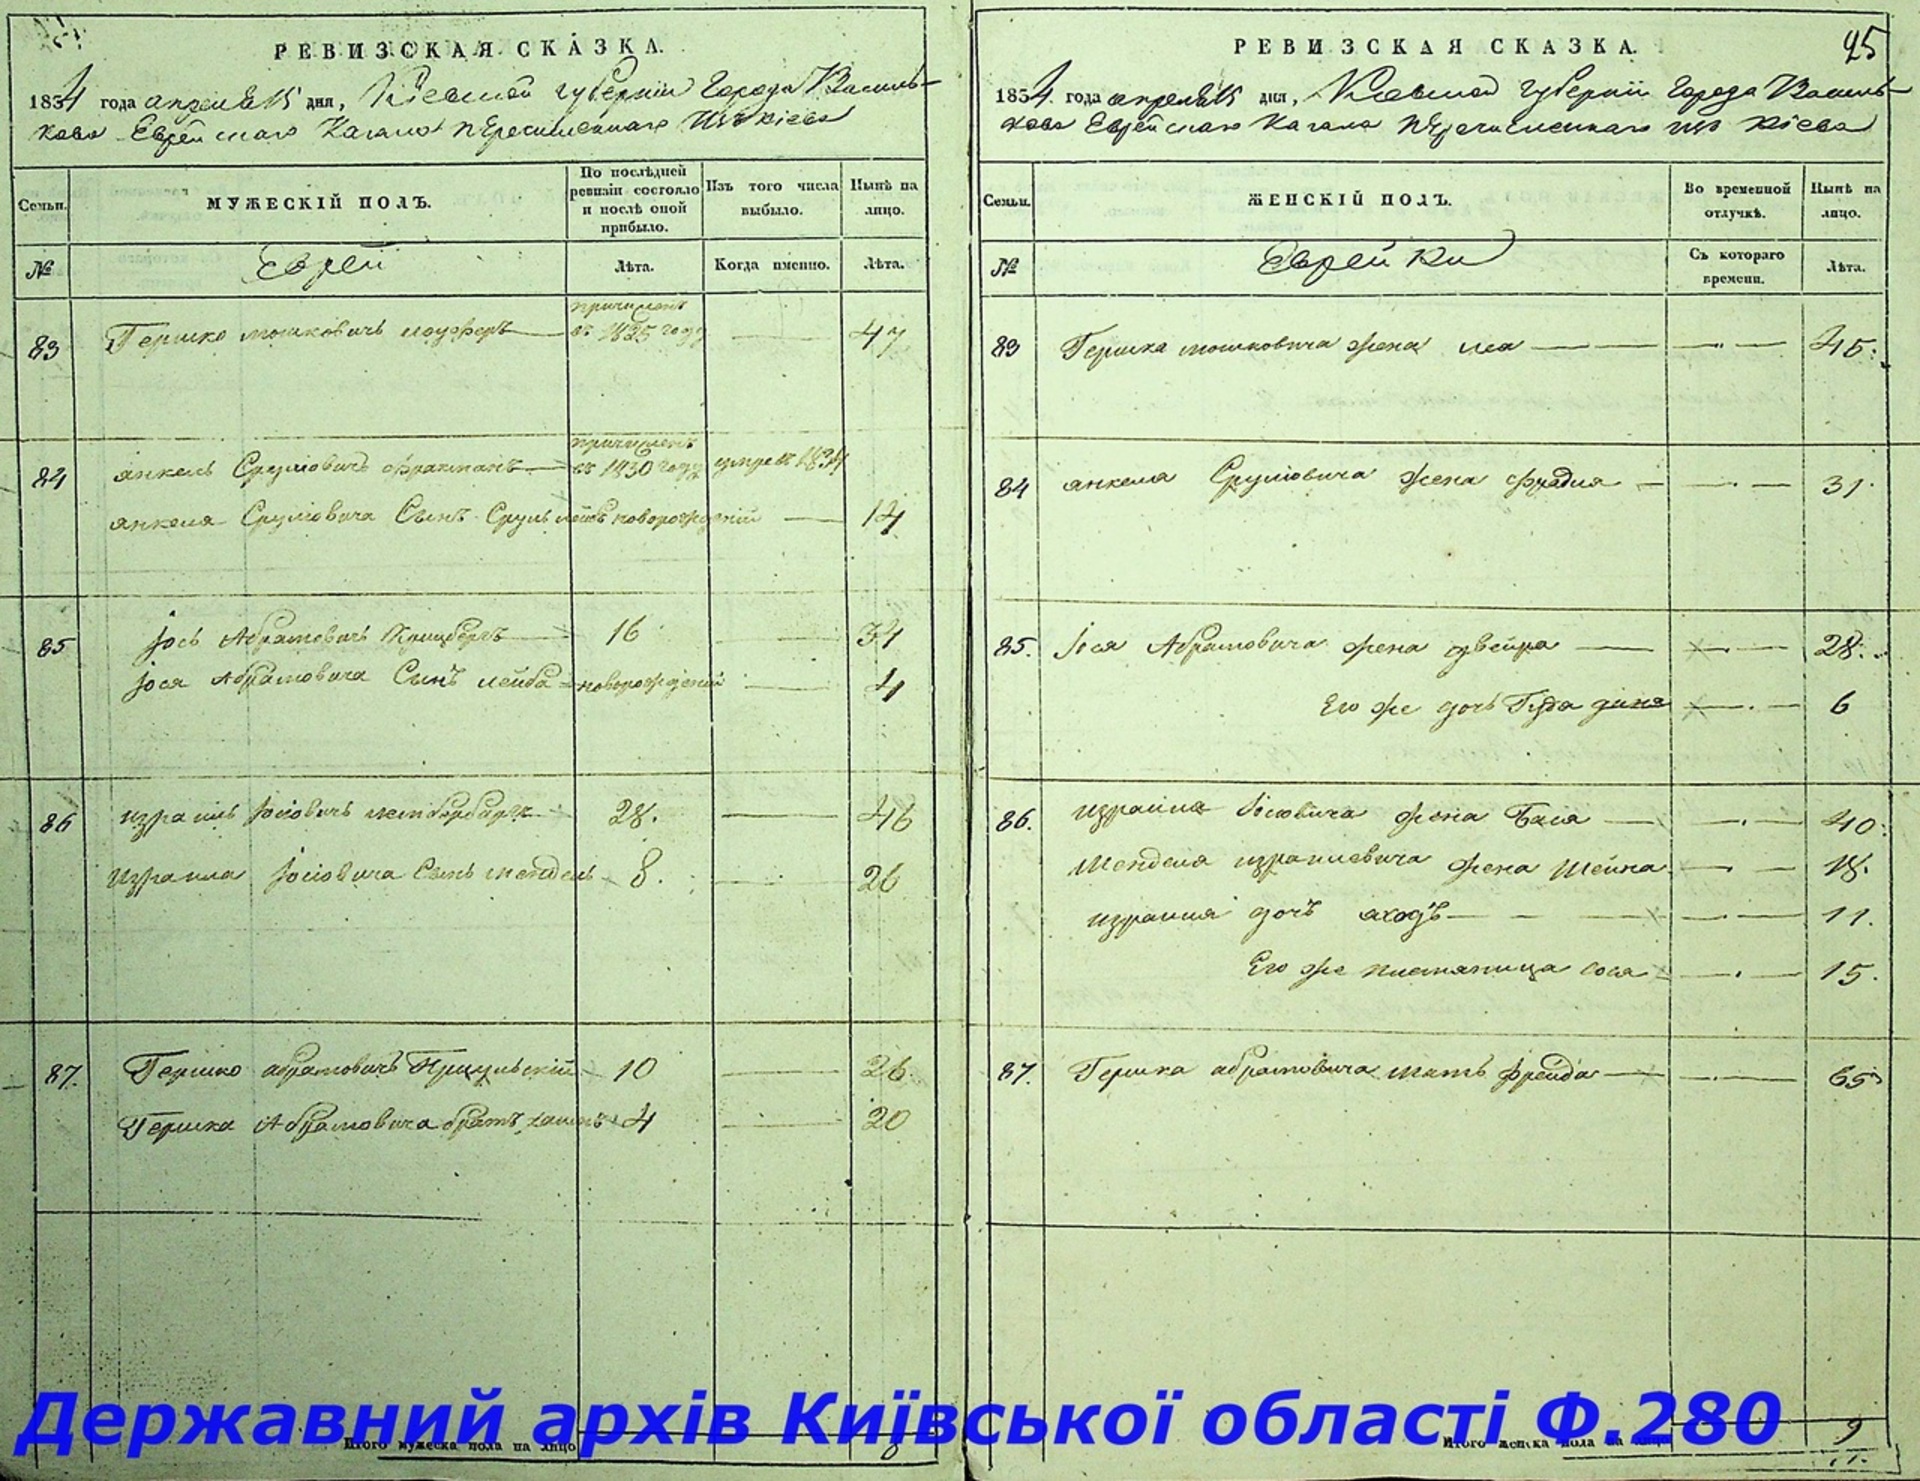 РЕВИЗСКАЯ СКАЗКА.
1854 года апреля 15 дня, Киевской губернии Города Василь-
кова Еврейскаго Кагала перечисленнаго изъ Кіева
Семьи.
МУЖЕСКІЙ ПОЛЪ.
По послѣдней ревизіи состояло и послѣ оной прибыло.
Изъ того числа выбыло.
Нынѣ на лицо.
№
Еврей
Лѣта.
Когда именно.
Лѣта.
83 Гершко Мошковичъ причислен в 1835 году — 47
84 Янкель Срулiовичъ причислен в 1830 году умре в 1834
Янкеля Срулiовича Сынъ Сруль Лейбъ новорожденій — 14
85 Іось Абрамовичъ 16 — 31
Іося Абрамовича Сынъ Лейба новорожденій — 4
86 Израиль Іосiовичъ 28. — 46
Израиля Іосiовича Сынъ Мендель 8. — 26
87. Гершко Абрамовичъ 10 — 26.
Гершка Абрамовича братъ Хаимъ 4 — 20
Итого мужеска пола на лицо 8
РЕВИЗСКАЯ СКАЗКА.
25
1854 года апреля 15 дня, Киевской губерніи Города Василь-
кова Еврейскаго Кагала перечисленнаго изъ Кіева
Семьи.
ЖЕНСКІЙ ПОЛЪ.
Во временной отлучкѣ.
Нынѣ на лицо.
№
Еврейки
Съ котораго времени.
Лѣта.
83 Гершка Мошковича жена Лея — 45.
84 Янкеля Срулiовича жена Фрадля — 31.
85. Іося Абрамовича жена Двейра — 28.
Его же дочь Гуда Диня — 6
86. Израиля Іосiовича жена Бася — 40.
Менделя Израилевича жена Шейна — 18.
Израиля дочъ — 11.
Его же племяница Сося — 15.
87. Гершка Абрамовича мать Фрейда — 65
Итого женска пола на лицо 9
Державний архів Київської області Ф.280